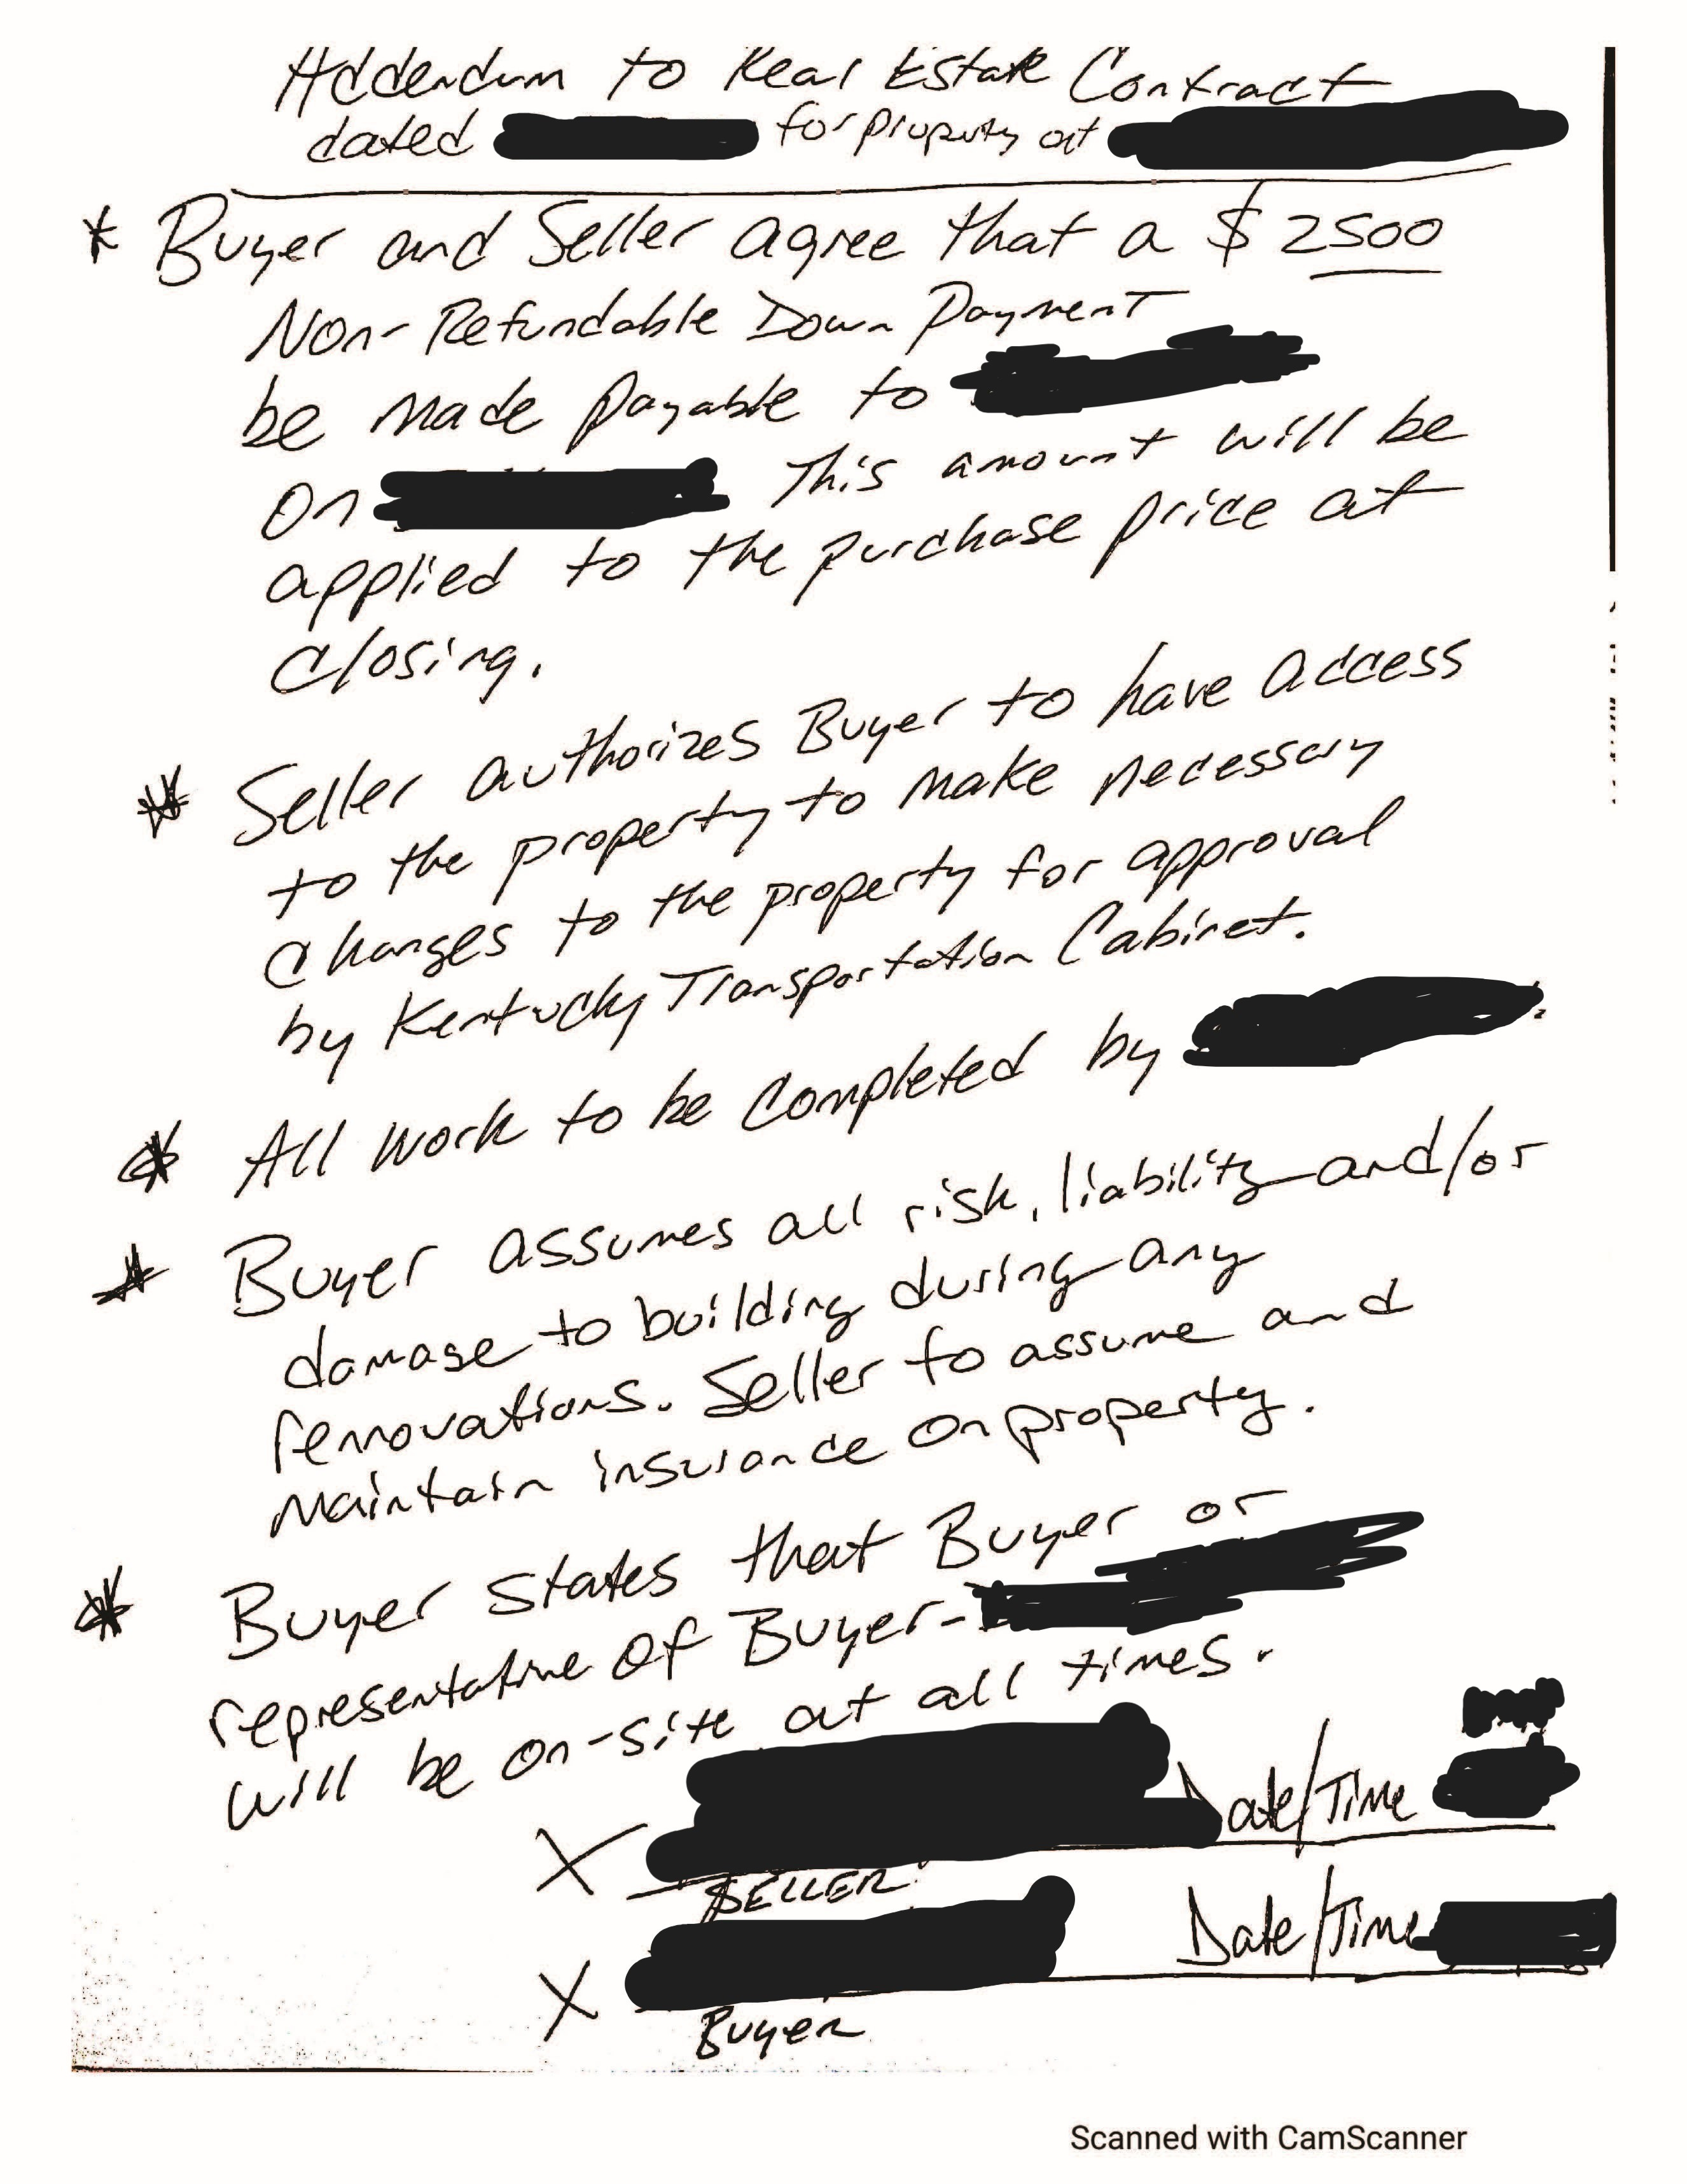 Addendum to Real Estate Contract
dated for property at
* Buyer and Seller agree that a $2500
Non-Refundable Down Payment
be made payable to
on This amount will be
applied to the purchase price at
closing.
* Seller authorizes Buyer to have access
to the property to make necessary
changes to the property for approval
by Kentucky Transportation Cabinet.
* All work to be completed by
* Buyer assumes all risk, liability and/or
damage to building during any
rennovations. Seller to assume and
maintain insurance on property.
* Buyer states that Buyer or
representative of Buyer-
will be on-site at all times.
X Date/Time
SELLER
X Date/Time
Buyer
Scanned with CamScanner